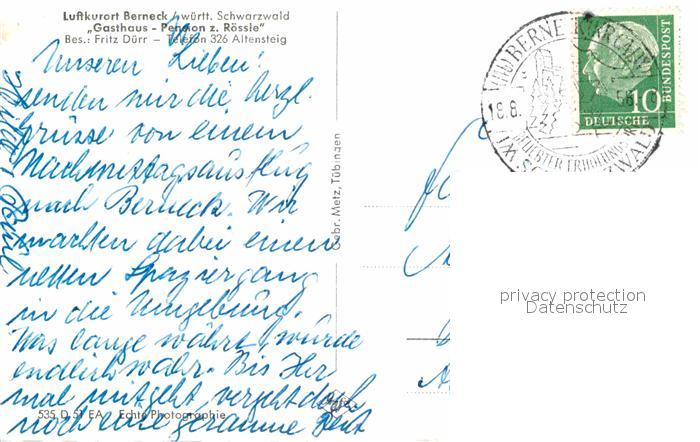 Luftkurort Berneck / württ. Schwarzwald
„Gasthaus - Pension z. Rössle"
Bes.: Fritz Dürr — Telefon 326 Altensteig
Unseren Lieben!
senden wir die herzl.
Grüsse von einem
Nachmittagsausflug
nach Berneck. Wir
machten dabei einen
netten Spaziergang
in die Umgebung.
Was lange währt, würde
endlich wahr. Bis Ihr
mal mitgeht vergeht doch
noch eine geraume Zeit
535 D 51 EA Echte Photographie
Gebr. Metz, Tübingen
BERNECK
18.8.58
BELIEBTER ERHOLUNGS
SCHWARZWALD
10
DEUTSCHE
BUNDESPOST
privacy protection
Datenschutz